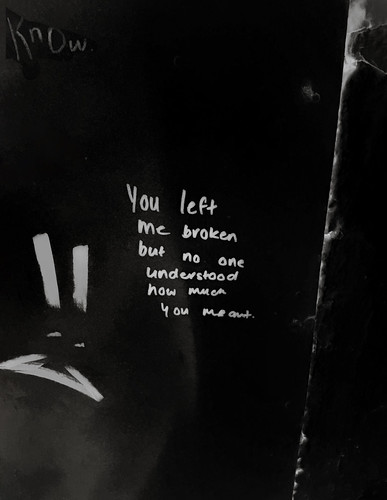 Know.
You left
me broken
but no one
understood
how much
you meant.